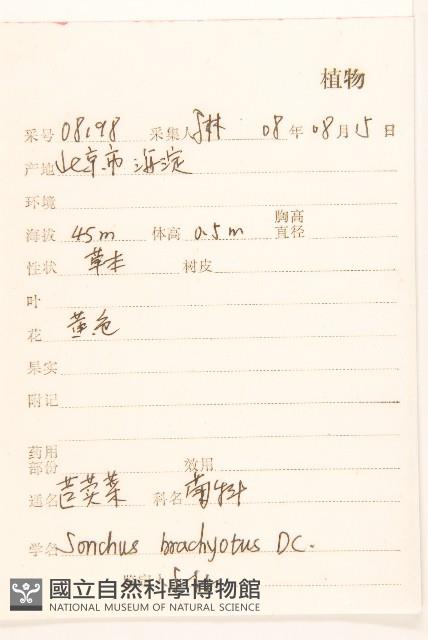 植物
采号 08198 采集人 林 08年08月15日
产地 北京市 海淀
环境
海拔 45m 体高 0.5m 胸高直径
性状 草本 树皮
叶
花 黄色
果实
附记
药用部份 效用
通名 苣荬菜 科名 菊科
学名 Sonchus brachyotus DC.
國立自然科學博物館
NATIONAL MUSEUM OF NATURAL SCIENCE